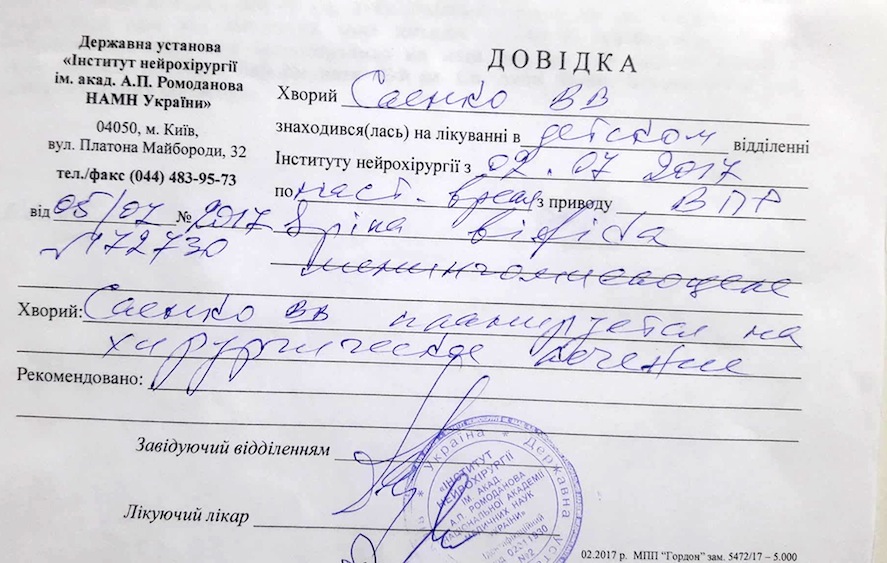 Державна установа
«Інститут нейрохірургії
ім. акад. А.П. Ромоданова
НАМН України»
04050, м. Київ,
вул. Платона Майбороди, 32
тел./факс (044) 483-95-73
від 05/07 № 2017
№172730
ДОВІДКА
Хворий Саенко ВВ
знаходився(лась) на лікуванні в детском відділенні
Інституту нейрохірургії з 02.07 2017
по наст. время з приводу ВПР
Spina bifida
менингомиелоцеле
Хворий: Саенко ВВ планируется на
хирургическое лечение
Рекомендовано:
Завідуючий відділенням
Лікуючий лікар
* Україна * Державна установа
«ІНСТИТУТ
НЕЙРОХІРУРГІЇ
ІМ. АКАД
А.П. РОМОДАНОВА
НАЦІОНАЛЬНОЇ АКАДЕМІЇ
МЕДИЧНИХ НАУК
УКРАЇНИ»
№2
02.2017 р. МПП "Гордон" зам. 5472/17 – 5.000